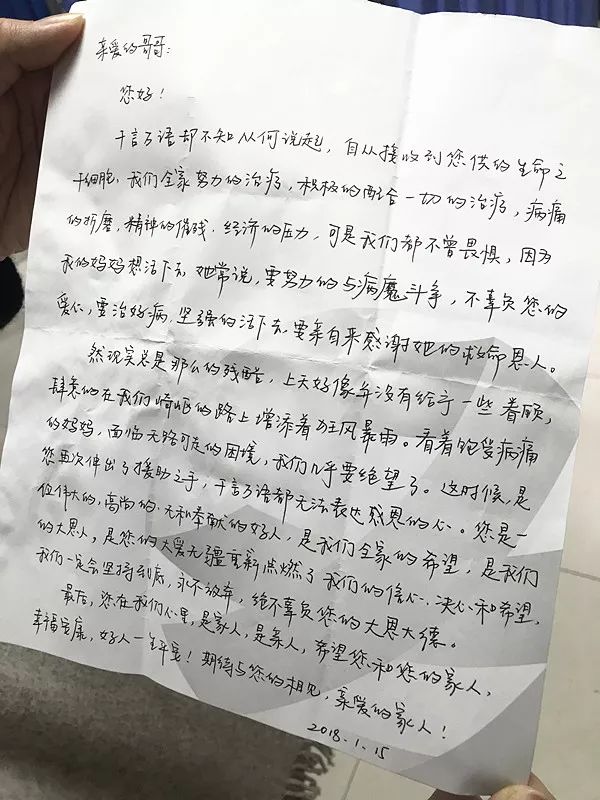 亲爱的哥哥:
您好!
千言万语却不知从何说起,自从接收到您供的生命之
干细胞、我们全家努力的治疗,积极的配合一切的治疗,病痛
的折磨,精神的催残.经济的压力,可是我们都不曾畏惧,因为
我的妈妈想活下去,她常说,要努力的与病魔斗争,不辜负您的
爱心,要治好病,坚强的活下去,要亲自来感谢她的救命恩人。
然现实总是那么的残酷,上天好像并没有给予一些眷顾,
肆意的在我们崎岖的路上增添着狂风暴雨。看着饱受病痛
的妈妈,面临无路可走的困境,我们几乎要绝望了。这时候,是
您再次伸出了援助之手,千言万语都无法表达感恩的心。您是一
位伟大的,高尚的.无私奉献的好人,是我们全家的希望,是我们
的大恩人,是您的大爱无疆重新点燃了我们的信心.决心和希望,
我们一定会坚持到底,永不放弃,绝不辜负您的大恩大德。
最后,您在我们心里,是家人,是亲人,希望您和您的家人,
幸福安康,好人一生平安!期待与您的相见,亲爱的家人!
2018.1.15